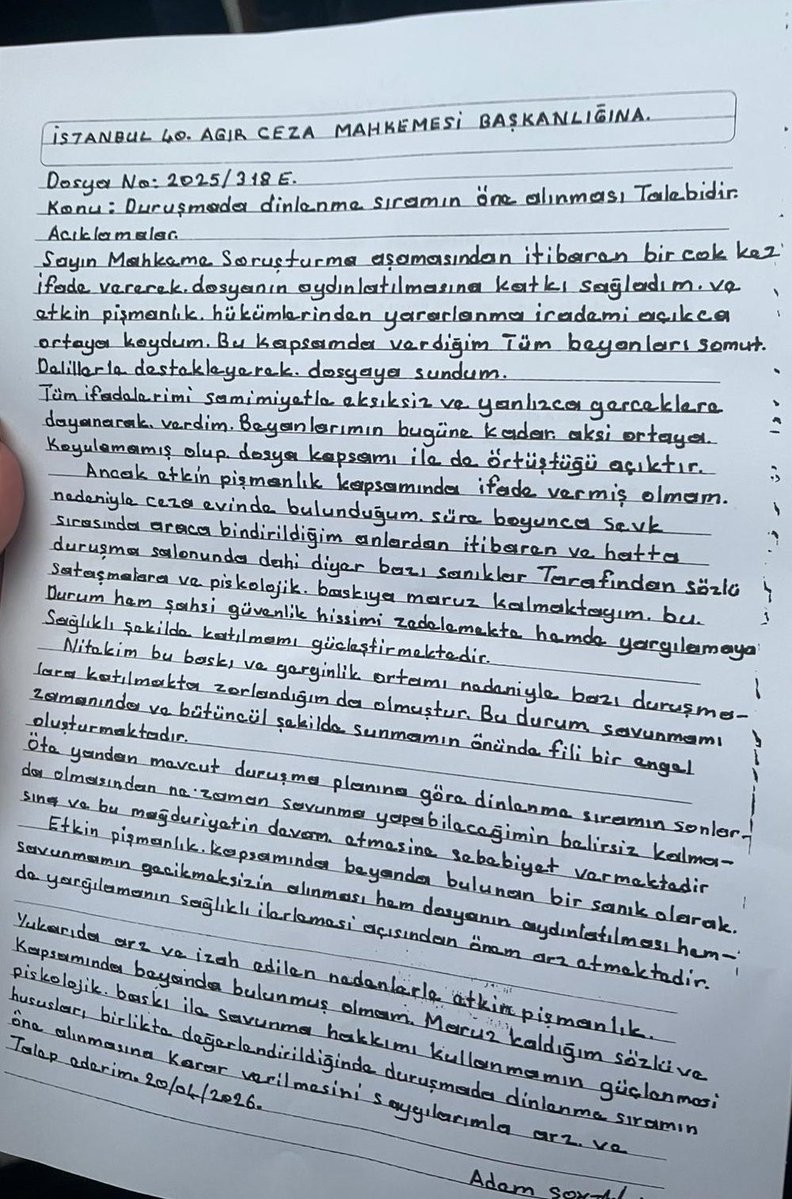 İSTANBUL 40. AGIR CEZA MAHKEMESİ BAŞKANLIĞINA.
Dosya No: 2025/318 E.
Konu: Duruşmada dinlenme sıramın öne alınması Talebidir.
Acıklamalar.
Sayın Mahkeme Soruşturma aşamasından itibaren bir cok kez
ifade vererek. dosyanın aydınlatılmasına katkı sağladım. ve
etkin pişmanlık. hükümlerinden yararlanma irademi açıkca
ortaya koydum. Bu kapsamda verdiğim Tüm beyanları somut.
Delillerle destekleyerek. dosyaya sundum.
Tüm ifadelerimi samimiyetle eksiksiz ve yanlızca gerceklere
dayanarak. verdim. Beyanlarımın bugüne kadar. aksi ortaya.
Koyulamamış olup. dosya kapsamı ile de örtüştüğü açıktır.
Ancak etkin pişmanlık kapsamında ifade vermiş olmam.
nedeniyle ceza evinde bulunduğum. süre boyunca sevk
sırasında araca bindirildiğim anlardan itibaren ve hatta
duruşma salonunda dahi diyer bazı sanıklar Tarafından sözlü
sataşmalara ve piskolojik. baskıya maruz kalmaktayım. bu.
Durum hem şahsi güvenlik hissimi zedelemekte hemde yargılamaya
Sağlıklı şekilde katılmamı güçleştirmektedir.
Nitekim bu baskı ve gerginlik ortamı nedeniyle bazı duruşma-
lara katılmakta zorlandığım da olmuştur. Bu durum savunmamı
zamanında ve bütüncül şekilde sunmamın önünde fili bir engel
oluşturmaktadır.
Öte yandan mevcut duruşma planına göre dinlenme sıramın sonlar-
da olmasından ne. zaman savunma yapabileceğimin belirsiz kalma-
sına ve bu mağduriyetin devam. etmesine sebebiyet vermektedir
Etkin pişmanlık. kapsamında beyanda bulunan bir sanık olarak.
savunmamın gecikmeksizin alınması hem dosyanın aydınlatılması hem-
de yargılamanın sağlıklı ilerlemesi açısından önem arz etmektedir.
Yukarıda arz ve izah edilen nedenlerle etkin pişmanlık.
Kapsamında beyanda bulunmuş olmam. Maruz kaldığım sözlü ve
piskolojik. baskı ile savunma hakkımı kullanmamın güçlenmesi
hususları, birlikte değerlendirildiğinde duruşmada dinlenme sıramın
öne alınmasına Karar verilmesini saygılarımla arz. ve
Talep ederim. 20/04/2026.
Adem